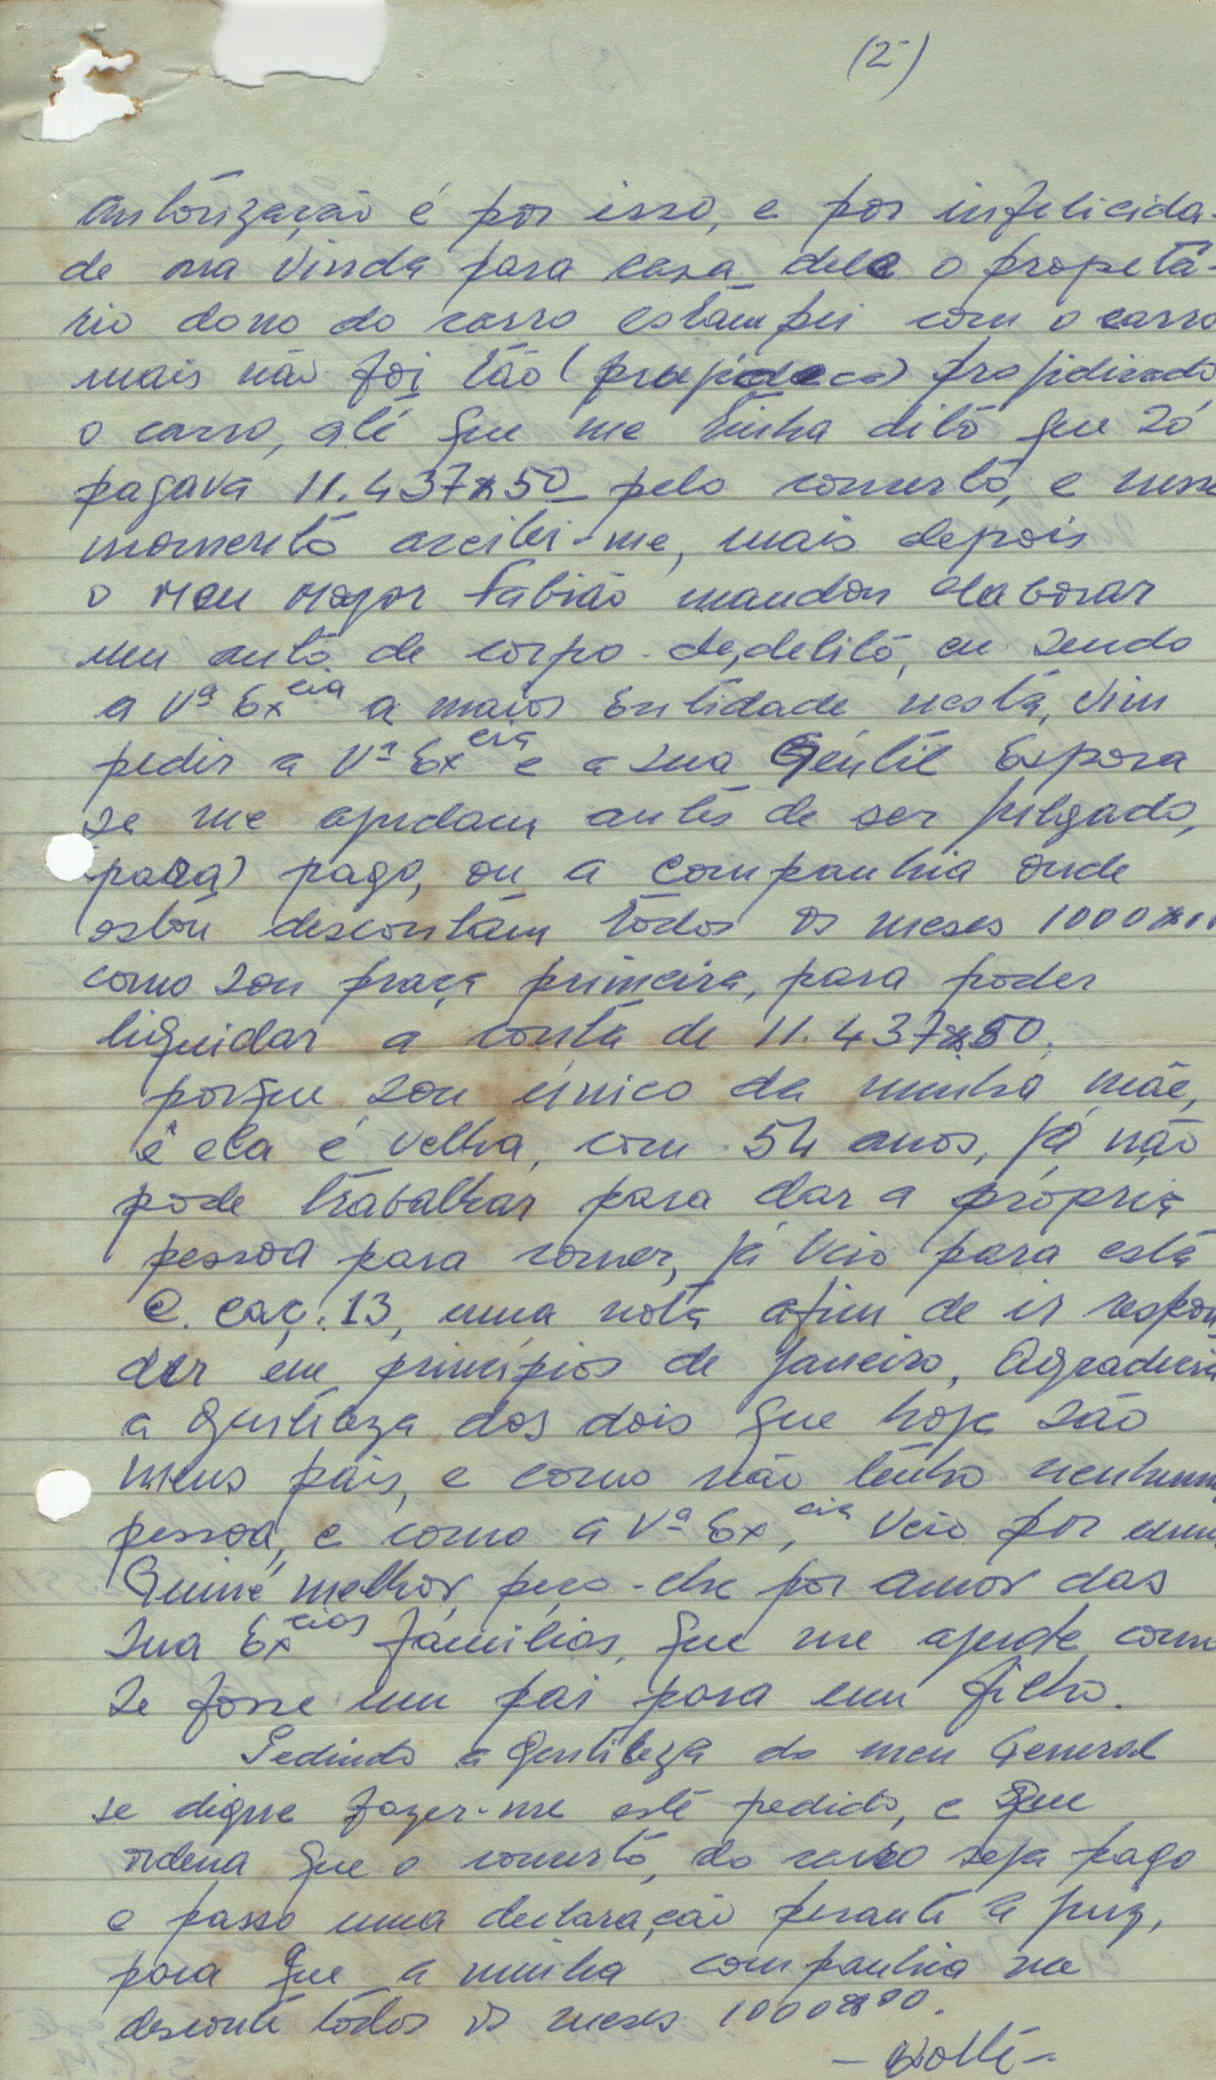 (2-)
autorização é por isso, e por infelicida-
de na vinda para casa dele o propetá-
rio dono do carro estampei com o carro
mais não foi tão ( ) projidicado
o carro, até que me tinha dito que só
pagava 11.437$50 pelo conserto, e nesse
momento aceitei-me, mais depois
o Meu Major Fabião mandou elaborar
um auto de corpo de, delito, eu sendo
a Vª Excia a maior Entidade nesta, vim
pedir a Vª Excia e a sua Gentil Esposa
se me ajudam antes de ser julgado,
(para) pago, ou a Companhia onde
estou descontam todos os meses 1000$00
como sou praça primeira, para poder
liquidar a conta de 11.437$50.
porque sou único da minha mãe,
e ela é velha, com 54 anos, já não
pode trabalhar para dar a própria
pessoa para comer, já veio para está
C. Caç. 13, uma nota afim de ir respon-
der em princípios de Janeiro, Agradecia
a gentileza dos dois que hoje são
meus pais, e como não tenho nenhuma
pessoa, e como a Vª Excia, veio por uma
Guiné melhor, peço-lhe por amor das
sua Excias famílias, que me ajude como
se fosse um pai para um filho.
Pedindo a gentileza do meu General
se digne fazer-me este pedido, e que
ordena que o conserto, do carro seja pago
e passo uma declaração perante a juiz,
para que a minha companhia na
desconte todos os meses 1000$00.